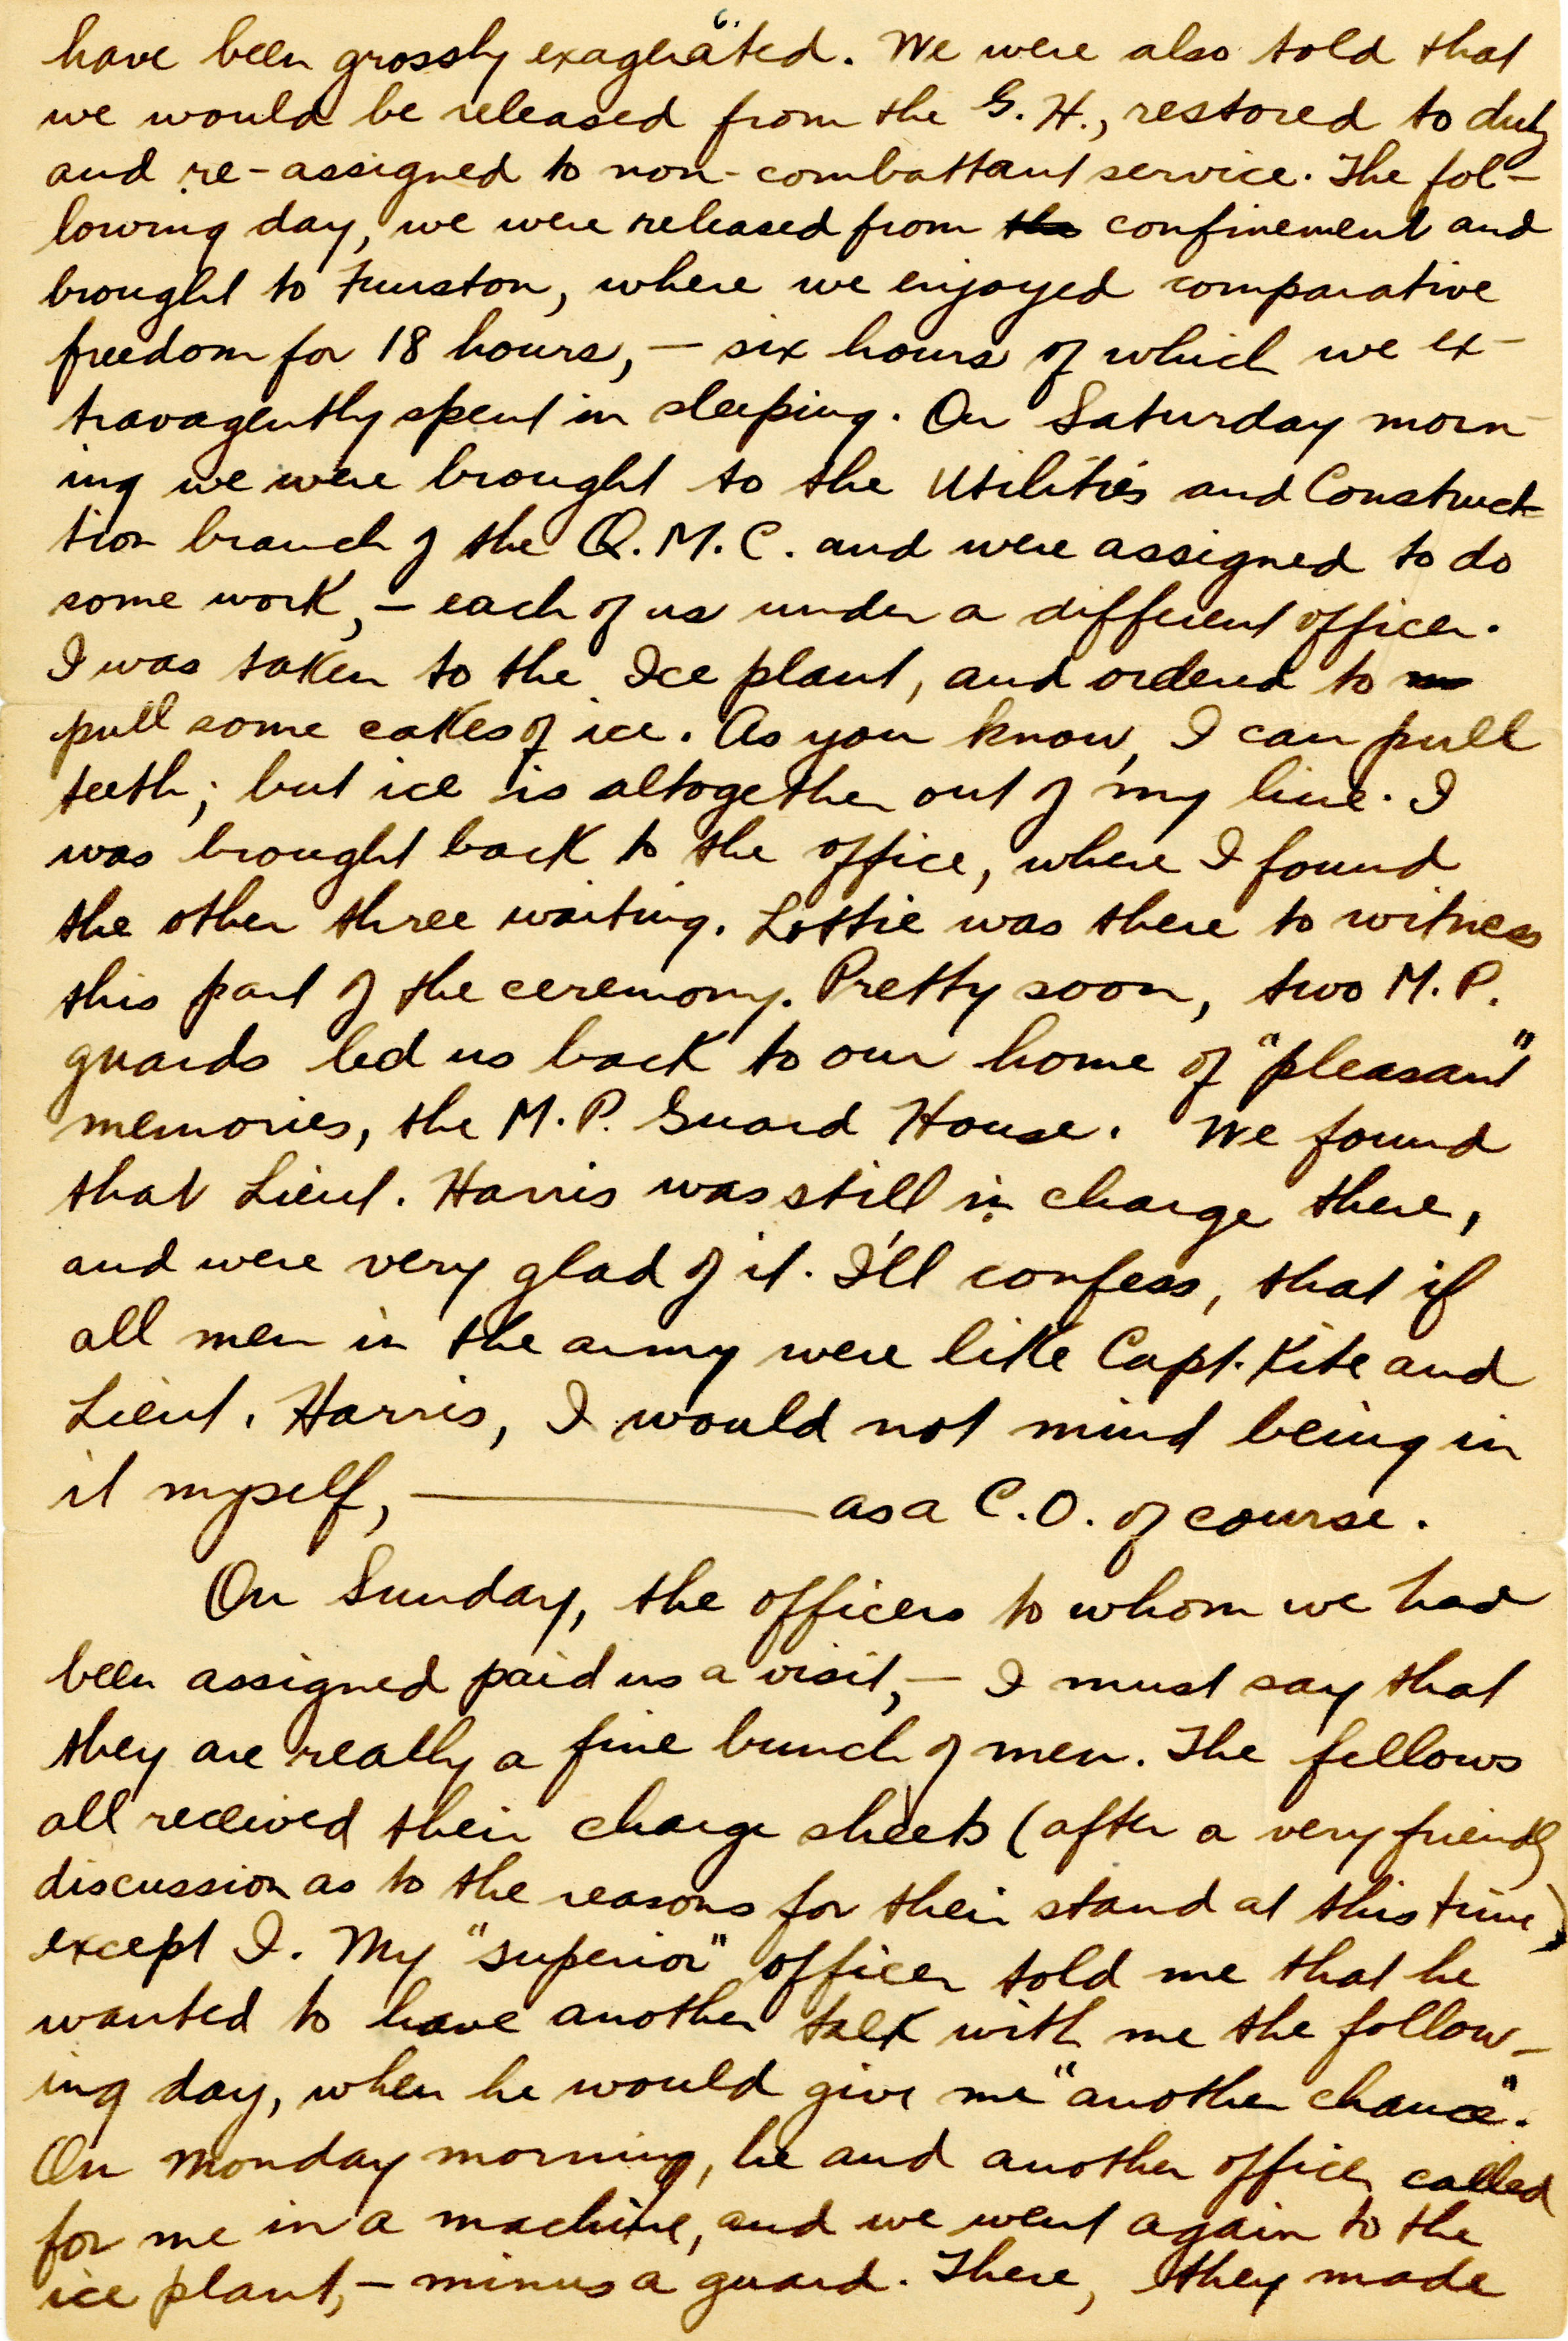 6.
have been grossly exagerated. We were also told that
we would be released from the G. H., restored to duty
and re-assigned to non-combattant service. The fol-
lowing day, we were released from the confinement and
brought to Funston, where we enjoyed comparative
freedom for 18 hours, – six hours of which we ex-
travagently spent in sleeping. On Saturday morn-
ing we were brought to the Utilities and Construct-
tion branch of the Q. M. C. and were assigned to do
some work, – each of us under a different officer.
I was taken to the Ice plant, and ordered to
pull some cakes of ice. As you know, I can pull
teeth; but ice is altogether out of my line. I
was brought back to the office, where I found
the other three waiting. Lottie was there to witness
this part of the ceremony. Pretty soon, two M. P.
guards led us back to our home of "pleasant"
memories, the M. P. Guard House. We found
that Lieut. Harris was still in charge there,
and were very glad of it. I'll confess, that if
all men in the army were like Capt. Kite and
Lieut. Harris, I would not mind being in
it myself, ——— as a C. O. of course.
On Sunday, the officers to whom we had
been assigned paid us a visit, – I must say that
they are really a fine bunch of men. The fellows
all received their charge sheets (after a very friendly
discussion as to the reasons for their stand at this time)
except I. My "superior" officer told me that he
wanted to have another talk with me the follow-
ing day, when he would give me "another chance".
On Monday morning, he and another officer called
for me in a machine, and we went again to the
ice plant, – minus a guard. There, they made